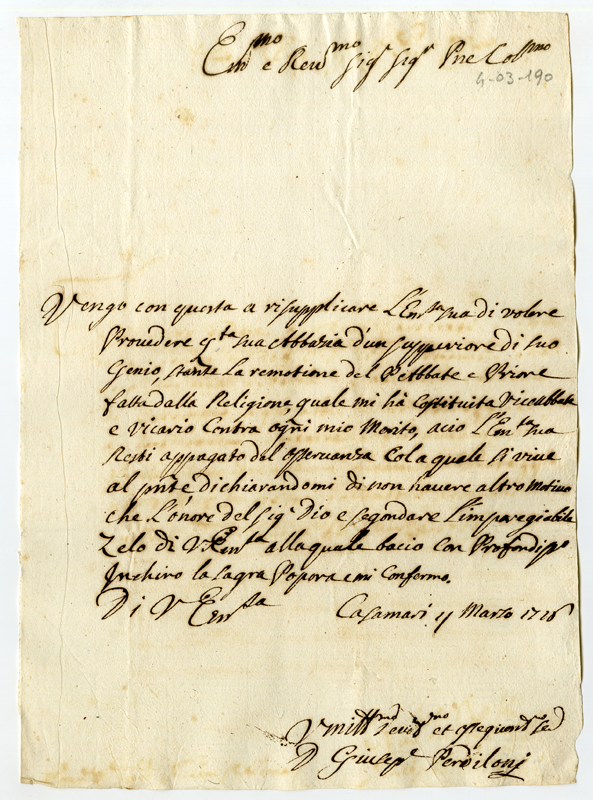 Em.mo e Reu.mo Sig.r Sig.r Pne Col.mo
4-03-190
Vengo con questa a risupplicare L'Em.za sua di volere
Prouedere q.ta sua Abbazia d'un supperiore di suo
Genio, stante La remotione del P Abbate e Priore
fatta dalla Religione, quale mi hà Costituita Viceabbate
e Vicario Contra ogni mio Merito, acio L'Em.za sua
Resti appagato del osseruanza Cola quale si viue
al pnte dichiarandomi di non hauere altro Motiuo
che L'onore del Sig.r Dio e segondare L'impareggiabile
Zelo di V Em.za alla quale bacio con Profondis.o
Inchiro la sagra Popora e mi Confermo.
Di V Em.za Casamari 11 Marzo 1716
D Giusep.e Perdiloni